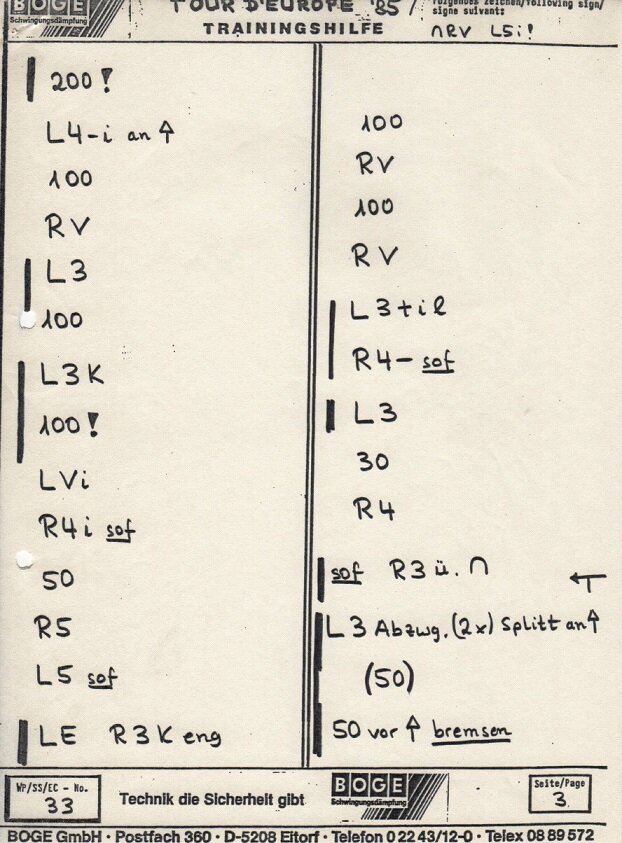 BOGE
Schwingungsdämpfung
TOUR D'EUROPE '85/
TRAININGSHILFE
folgendes Zeichen/following sign/
signe suivant:
∩RV L5i!
200!
L4-i an ↑
100
RV
L3
100
L3K
100!
LVi
R4i sof
50
R5
L5 sof
LE R3K eng
100
RV
100
RV
L3+il
R4- sof
L3
30
R4
sof R3 ü. ∩
L3 Abzwg. (2x) Splitt an ↑
(50)
50 vor ↑ bremsen
WP/SS/EC - No.
33
Technik die Sicherheit gibt
BOGE
Schwingungsdämpfung
Seite/Page
3
BOGE GmbH · Postfach 360 · D-5208 Eitorf · Telefon 0 22 43/12-0 · Telex 08 89 572